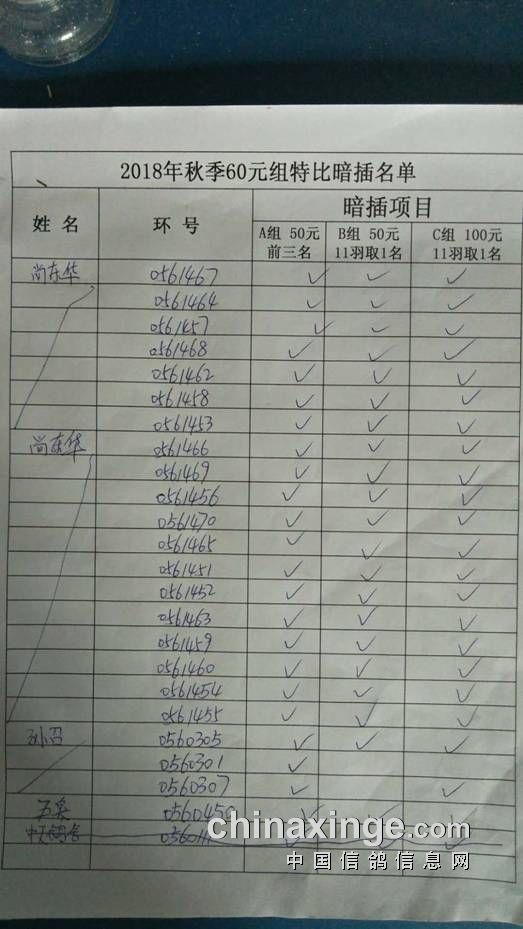 2018年秋季60元组特比暗插名单
姓 名 环 号 暗插项目
A组 50元 前三名 B组 50元 11羽取1名 C组 100元 11羽取1名
尚东华 0561467 ✓ ✓ ✓
0561464 ✓ ✓ ✓
0561457 ✓ ✓ ✓
0561468 ✓ ✓ ✓
0561462 ✓ ✓ ✓
0561458 ✓ ✓ ✓
0561453 ✓ ✓ ✓
尚东华 0561466 ✓ ✓ ✓
0561469 ✓ ✓ ✓
0561456 ✓ ✓ ✓
0561470 ✓ ✓ ✓
0561465 ✓ ✓ ✓
0561451 ✓ ✓ ✓
0561452 ✓ ✓ ✓
0561463 ✓ ✓ ✓
0561459 ✓ ✓ ✓
0561460 ✓ ✓ ✓
0561454 ✓ ✓ ✓
0561455 ✓ ✓ ✓
孙召 0560305 ✓ ✓ ✓
0560301 ✓
0560307 ✓ ✓
0560450 ✓ ✓ ✓
chinaxinge.com
中国信鸽信息网